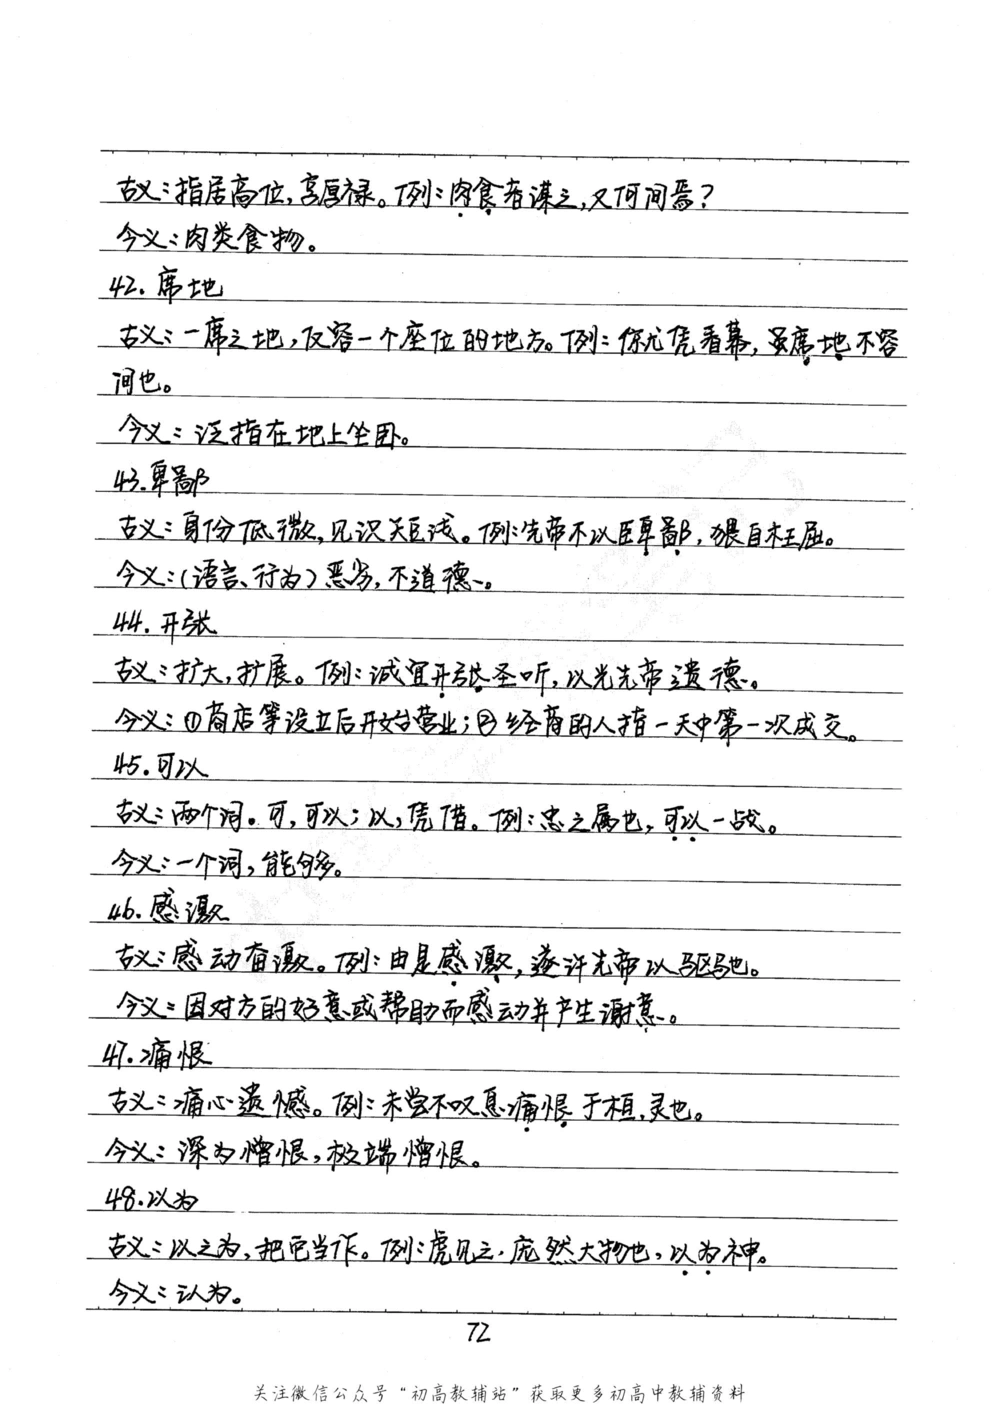 古义：指居高位，享厚禄。例：肉食者谋之，又何间焉？
今义：肉类食物。
42. 席地
古义：一席之地，仅容一个座位的地方。例：你尤凭看幕，虽席地不容
河也。
今义：泛指在地上坐卧。
43.卑鄙
古义：身份低微，见识短浅。例：先帝不以臣卑鄙，猥自枉屈。
今义：(语言、行为)恶劣，不道德。
44. 开张
古义：扩大，扩展。例：诚宜开张圣听，以光先帝遗德。
今义：①商店等设立后开始营业；②经商的人指一天中第一次成交。
45.可以
古义：两个词。可，可以；以，凭借。例：忠之属也，可以一战。
今义：一个词，能够。
46.感激
古义：感动奋激。例：由是感激，遂许先帝以驱驰。
今义：因对方的好意或帮助而感动并产生谢意。
47.痛恨
古义：痛心遗憾。例：未尝不叹息痛恨于桓，灵也。
今义：深为憎恨，极端憎恨。
48.以为
古义：以之为，把它当作。例：虎见之，庞然大物也，以为神。
今义：认为。
72
关注微信公众号“初高教辅站”获取更多初高中教辅资料